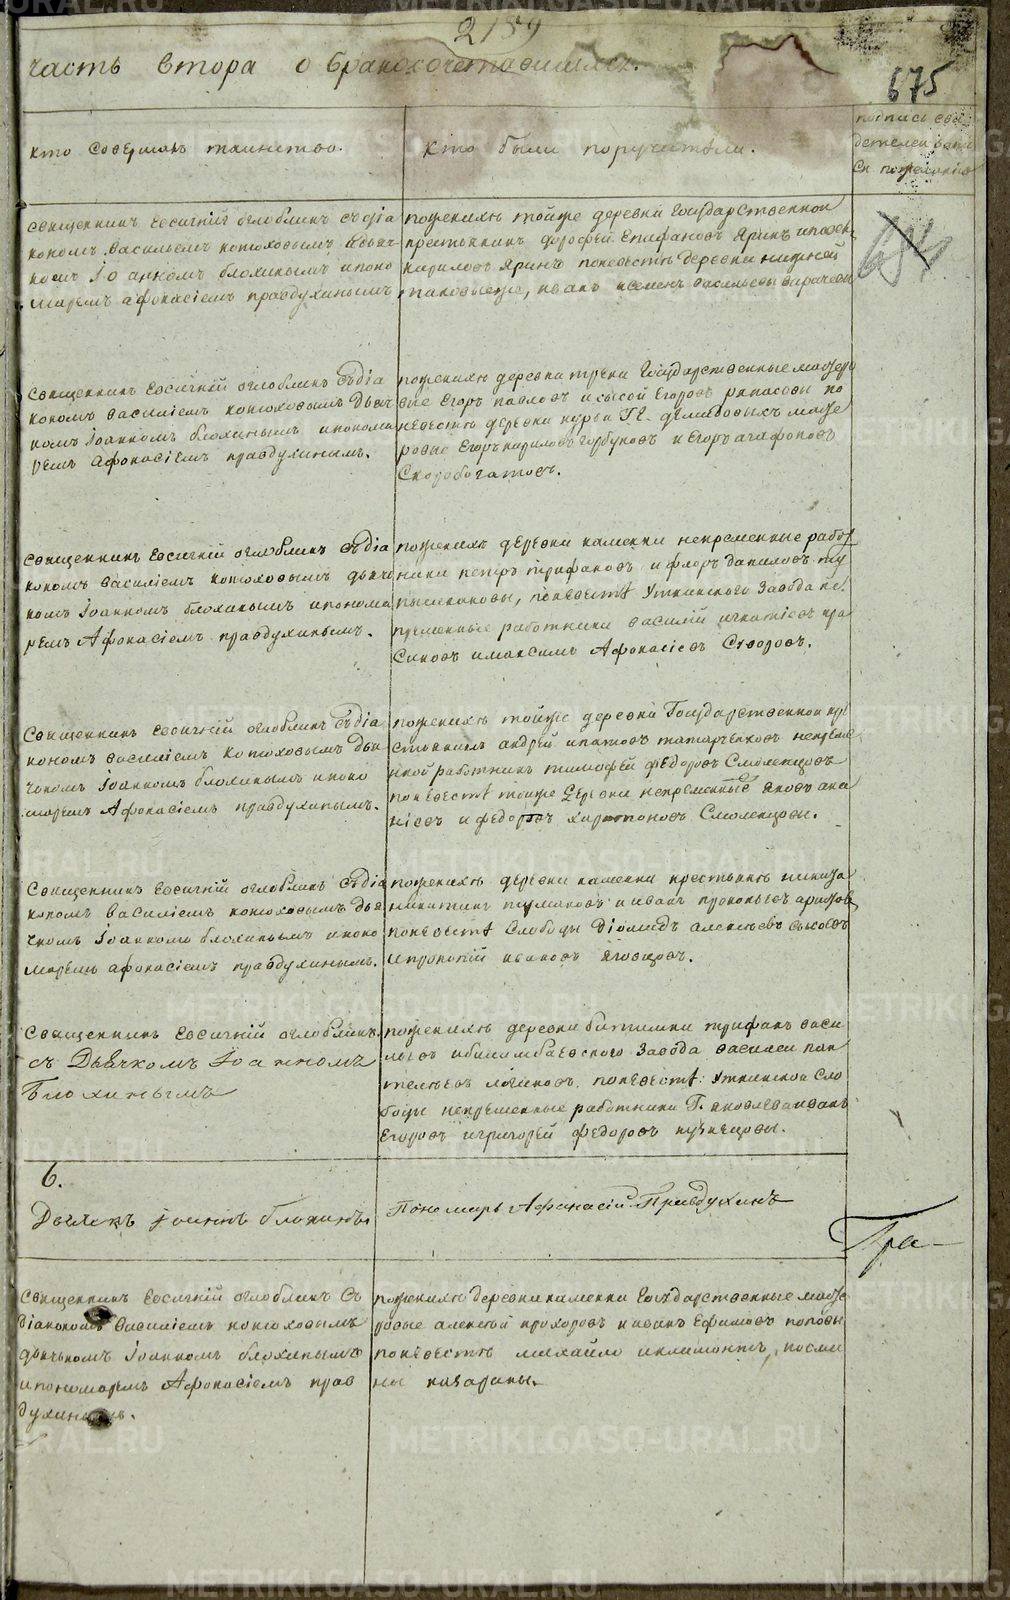 2159
часть втора о бракосочетавшихся.
675
кто совершалъ таинство.
кто были поручители.
подпись сви
детелей запи
си по желанию
священникъ Евсигній оглоблинъ съ діа
кономъ Василіемъ конюховымъ дьяч
комъ Іоанномъ блохинымъ и поно
маремъ афонасіемъ правдухинымъ
по женихѣ тойже деревни Государственной
крестьянинъ дорофей Епифановъ Яринъ
кириловъ Яринъ по невестѣ деревни нижней
иванъ и семенъ васильевы
священникъ Евсигній оглоблинъ съ діа
кономъ василіемъ конюховымъ дьяч
комъ Іоанномъ блохинымъ и понома
ремъ Афонасіемъ правдухинымъ.
по женихѣ деревни Государственные мастеро
вые Егоръ павловъ и сысой Егоровъ по
невестѣ деревни курьи Гг. демидовыхъ масте
ровые Егоръ кириловъ горбуновъ и Егоръ агафоновъ
Скоробогатовъ.
священникъ Евсигній оглоблинъ съ діа
кономъ василіемъ конюховымъ дьяч
комъ Іоанномъ блохинымъ и понома
ремъ Афонасіемъ правдухинымъ.
по женихѣ деревни каменки непременные работ
ники петръ трифановъ и флоръ даниловъ
по невестѣ Уткинского Завода не
пременные работники василій игнатіевъ кра
сиковъ и максимъ Афонасіевъ Суворовъ.
священникъ Евсигній оглоблинъ съ діа
кономъ василіемъ конюховымъ дья
чкомъ Іоанномъ блохинымъ и поно
маремъ Афонасіемъ правдухинымъ.
по женихѣ тойже деревни Государственной кре
стьянинъ андрей ипатовъ татарченковъ непреме
нной работникъ тимофей федоровъ Смоленцовъ
по невестѣ тойже деревни непременные яковъ ана
ніевъ и федоръ харитоновъ Смоленцовы.
священникъ Евсигній оглоблинъ съ діа
кономъ василіемъ конюховымъ дья
чкомъ Іоанномъ блохинымъ и поно
маремъ афонасіемъ правдухинымъ.
по женихѣ деревни каменки крестьяне
никитинъ тумаковъ и иванъ прокопьевъ
по невестѣ Слободы діомидъ алексеевъ сысоевъ
и прокопій ивановъ яговцовъ.
священникъ Евсигній оглоблинъ
съ Дьячкомъ Іоанномъ
Блохинымъ
по женихѣ деревни битимки трифанъ васи
льевъ и билимбаевского Завода василей пан
телеевъ логиновъ, по невестѣ: Уткинской Сло
боды непременные работники Г. яковлева иванъ
Егоровъ и григорей федоровъ кузнецовы.
6.
Дьячекъ Іоаннъ блохинъ
Пономарь Афанасій Правдухинъ
Пра-
священникъ Евсигній оглоблинъ съ
діакономъ Василіемъ конюховымъ
дьячькомъ Іоанномъ блохинымъ
и пономаремъ Афонасіемъ прав
духинымъ.
по женихѣ деревни каменки Государственные масте
ровые алексѣй прохоровъ и иванъ Ефимовъ поповы
по невестѣ михайло и климонтъ, косми
ны назарины.
METRIKI.GASO-URAL.RU